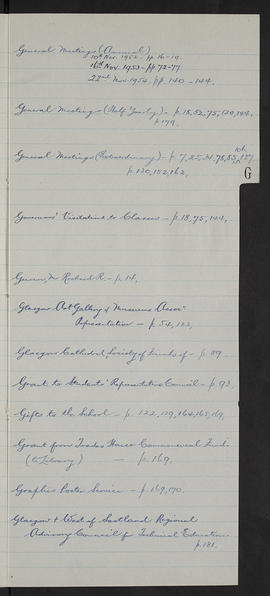 General Meetings (Annual)
10th Nov. 1952 - pp 16-19.
16th Nov. 1953 - pp 72-77.
22nd Nov. 1954 - pp. 140-144.
General Meetings (Half Yearly) - p. 18, 52, 75, 120, 144,
p. 179.
General Meetings (Extraordinary) - p. 7, 25, 34, 78, 83, 157.
p. 130, 152, 162.
G
Governors' Visitations to Classes - p. 18, 75, 144.
Mr Richard R. - p. 14.
Glasgow Art Gallery & Museums Assocn
Representation - p. 54, 122,
Glasgow Cathedral, Society of Friends of - p. 89.
Grant to Students' Representative Council - p. 92.
Gifts to the School - p. 122, 129, 164, 165, 169,
Grant from Trades House Commonweal Fund.
(to Library) - p. 169.
Graphic Poster Service - p. 169, 170.
Glasgow & West of Scotland Regional
Advisory Council for Technical Education
p. 181.